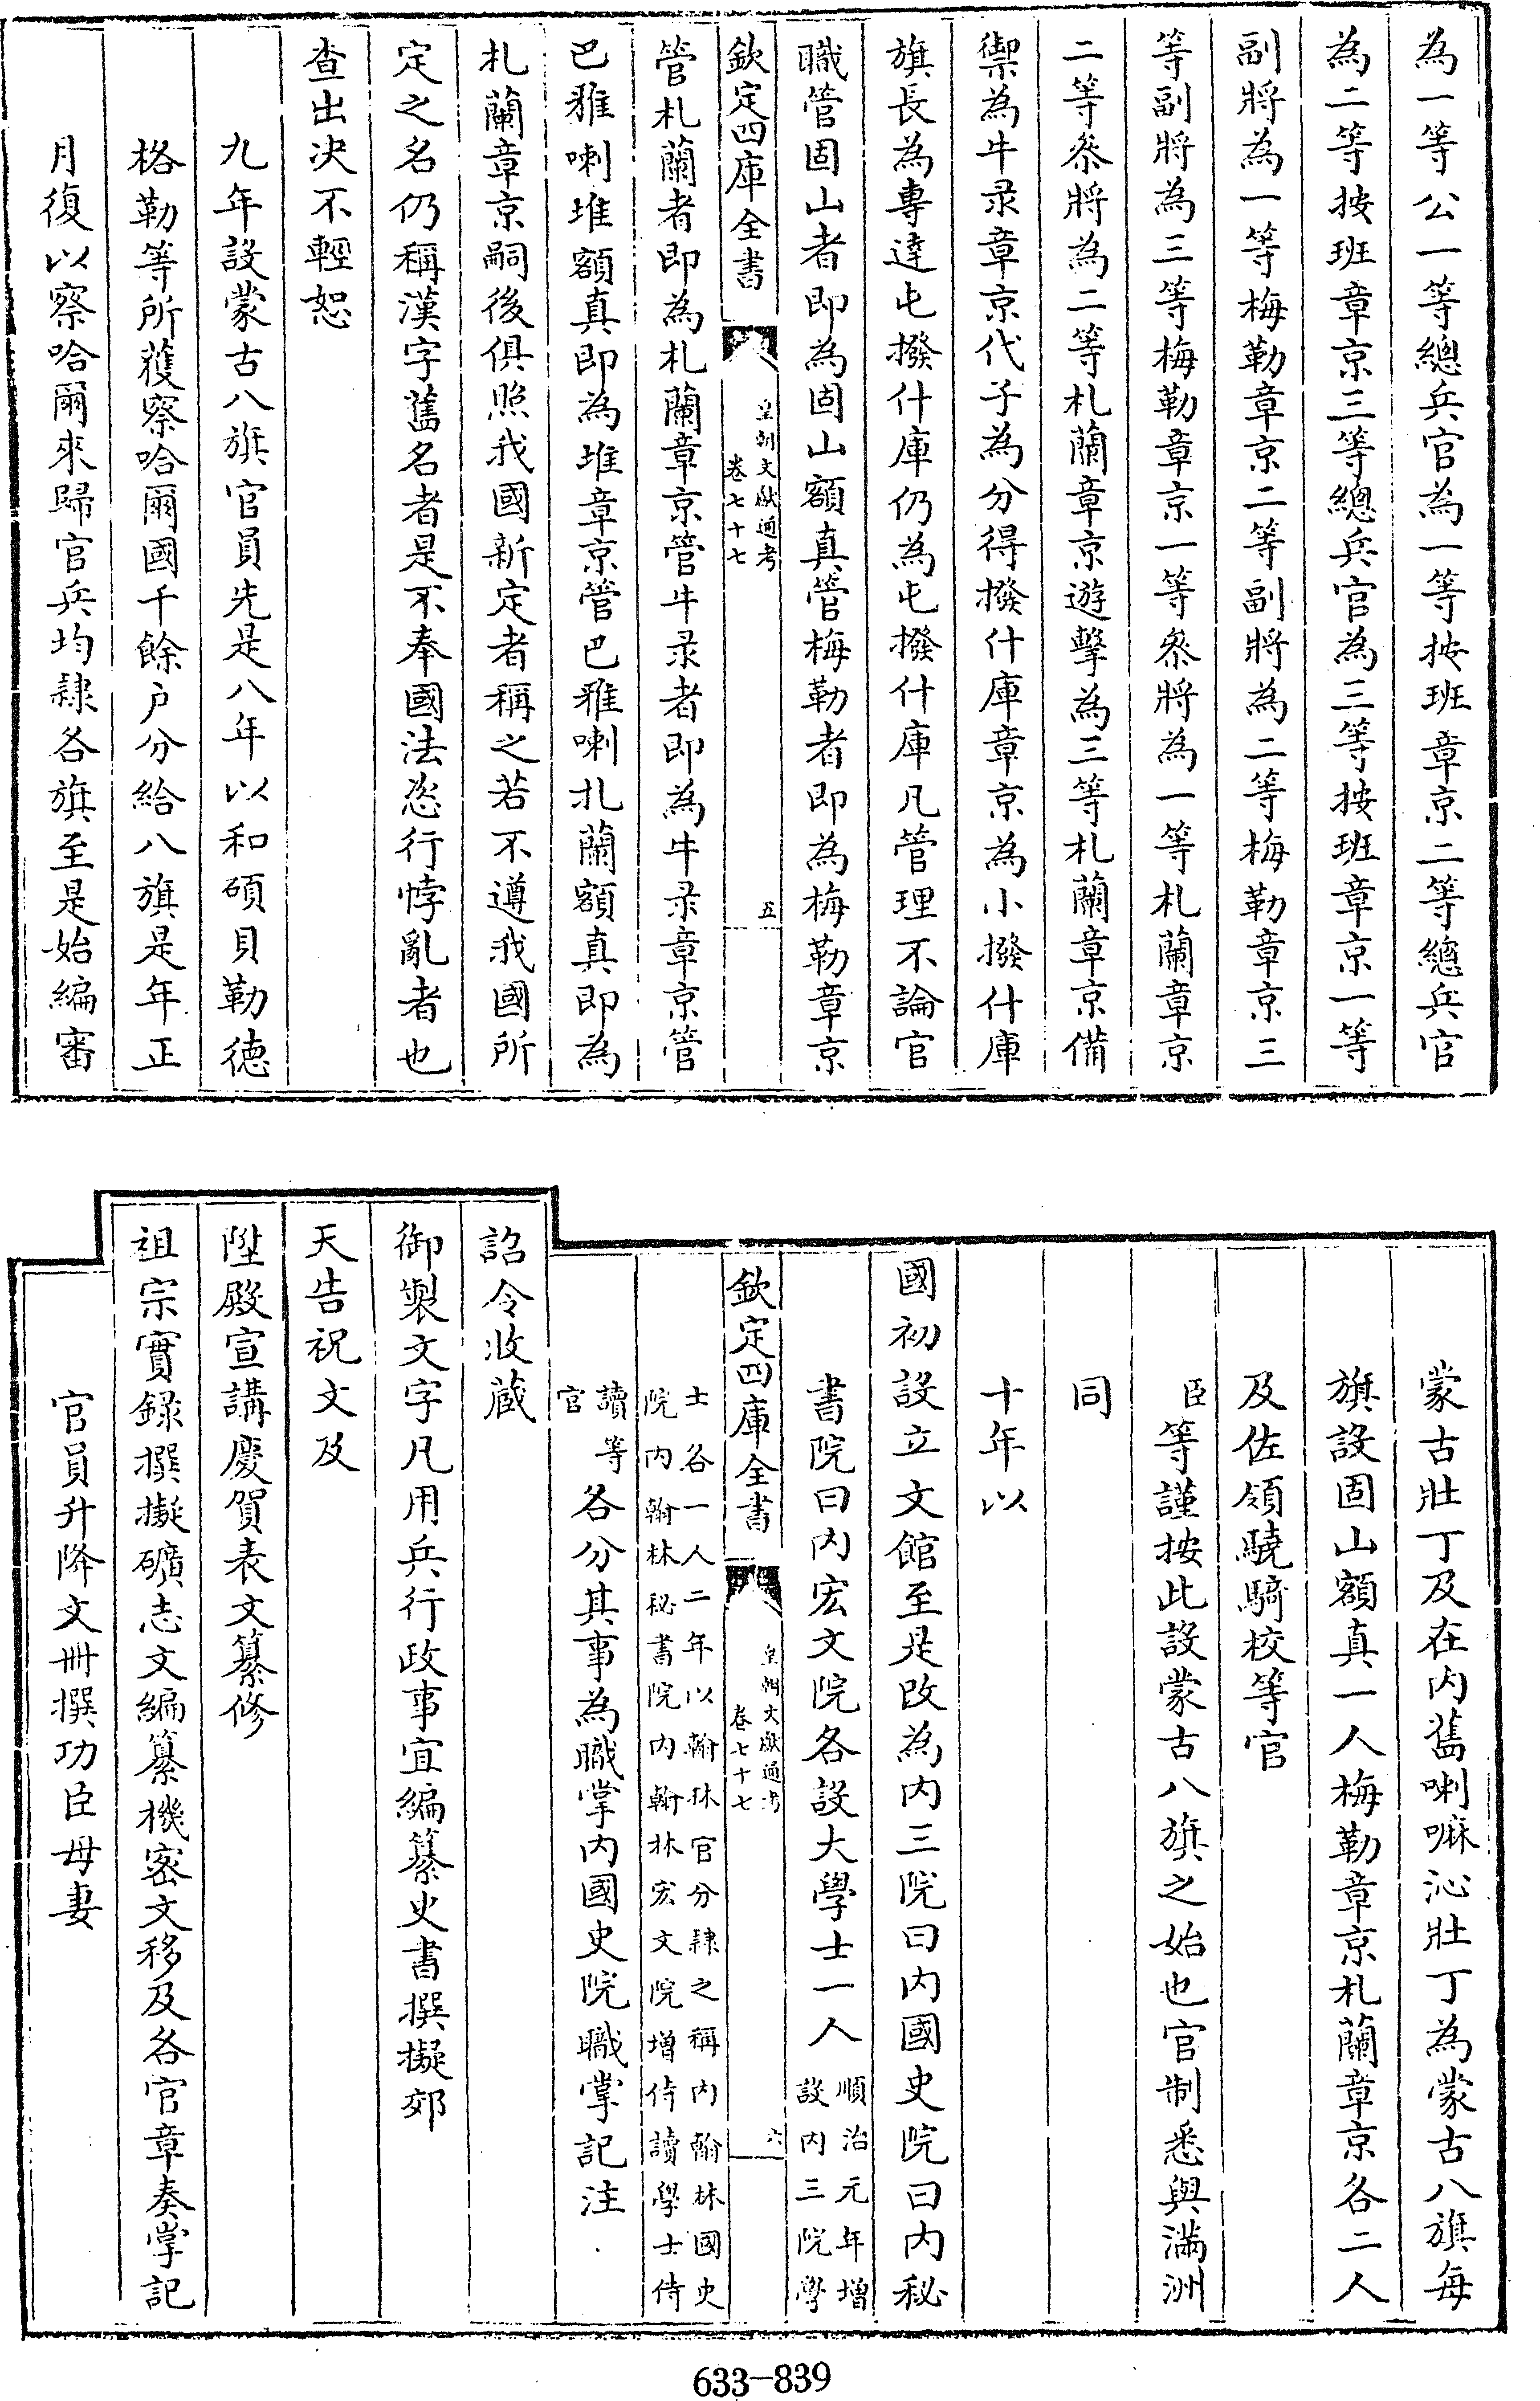 為一等公一等總兵官為一等按班章京二等總兵官
為二等按班章京三等總兵官為三等按班章京一等
副將為一等梅勒章京二等副將為二等梅勒章京三
等副將為三等梅勒章京一等叅將為一等札蘭章京
二等叅將為二等札蘭章京遊擊為三等札蘭章京備
禦為牛录章京代子為分得撥什庫章京為小撥什庫
旗長為專達屯撥什庫仍為屯撥什庫凡管理不論官
職管固山者即為固山額真管梅勒者即為梅勒章京
欽定四庫全書
皇朝文獻通考
卷七十七
五
管札蘭者即為札蘭章京管牛录者即為牛录章京管
巴雅喇堆額真即為堆章京管巴雅喇札蘭額真即為
札蘭章京嗣後俱照我國新定者稱之若不遵我國所
定之名仍稱漢字舊名者是不奉國法恣行悖亂者也
查出决不輕恕
九年設蒙古八旗官員先是八年以和碩貝勒德
格勒等所獲察哈爾國千餘户分給八旗是年正
月復以察哈爾來歸官兵均隸各旗至是始編審
蒙古壯丁及在内舊喇嘛沁壯丁為蒙古八旗每
旗設固山額真一人梅勒章京札蘭章京各二人
及佐領驍騎校等官
臣等謹按此設蒙古八旗之始也官制悉與滿洲
同
十年以
國初設立文館至是改為内三院曰内國史院曰内秘
書院曰内宏文院各設大學士一人順治元年增
設内三院學
欽定四庫全書
皇朝文獻通考
卷七十七
六
士各一人二年以翰林官分隸之稱内翰林國史
院内翰林秘書院内翰林宏文院增侍讀學士侍
讀等
官各分其事為職掌内國史院職掌記注
詔令收藏
御製文字凡用兵行政事宜編纂史書撰擬郊
天告祝文及
陞殿宣講慶賀表文纂修
祖宗實錄撰擬礦志文編纂機密文移及各官章奏掌記
官員升降文冊撰功臣母妻
633-839